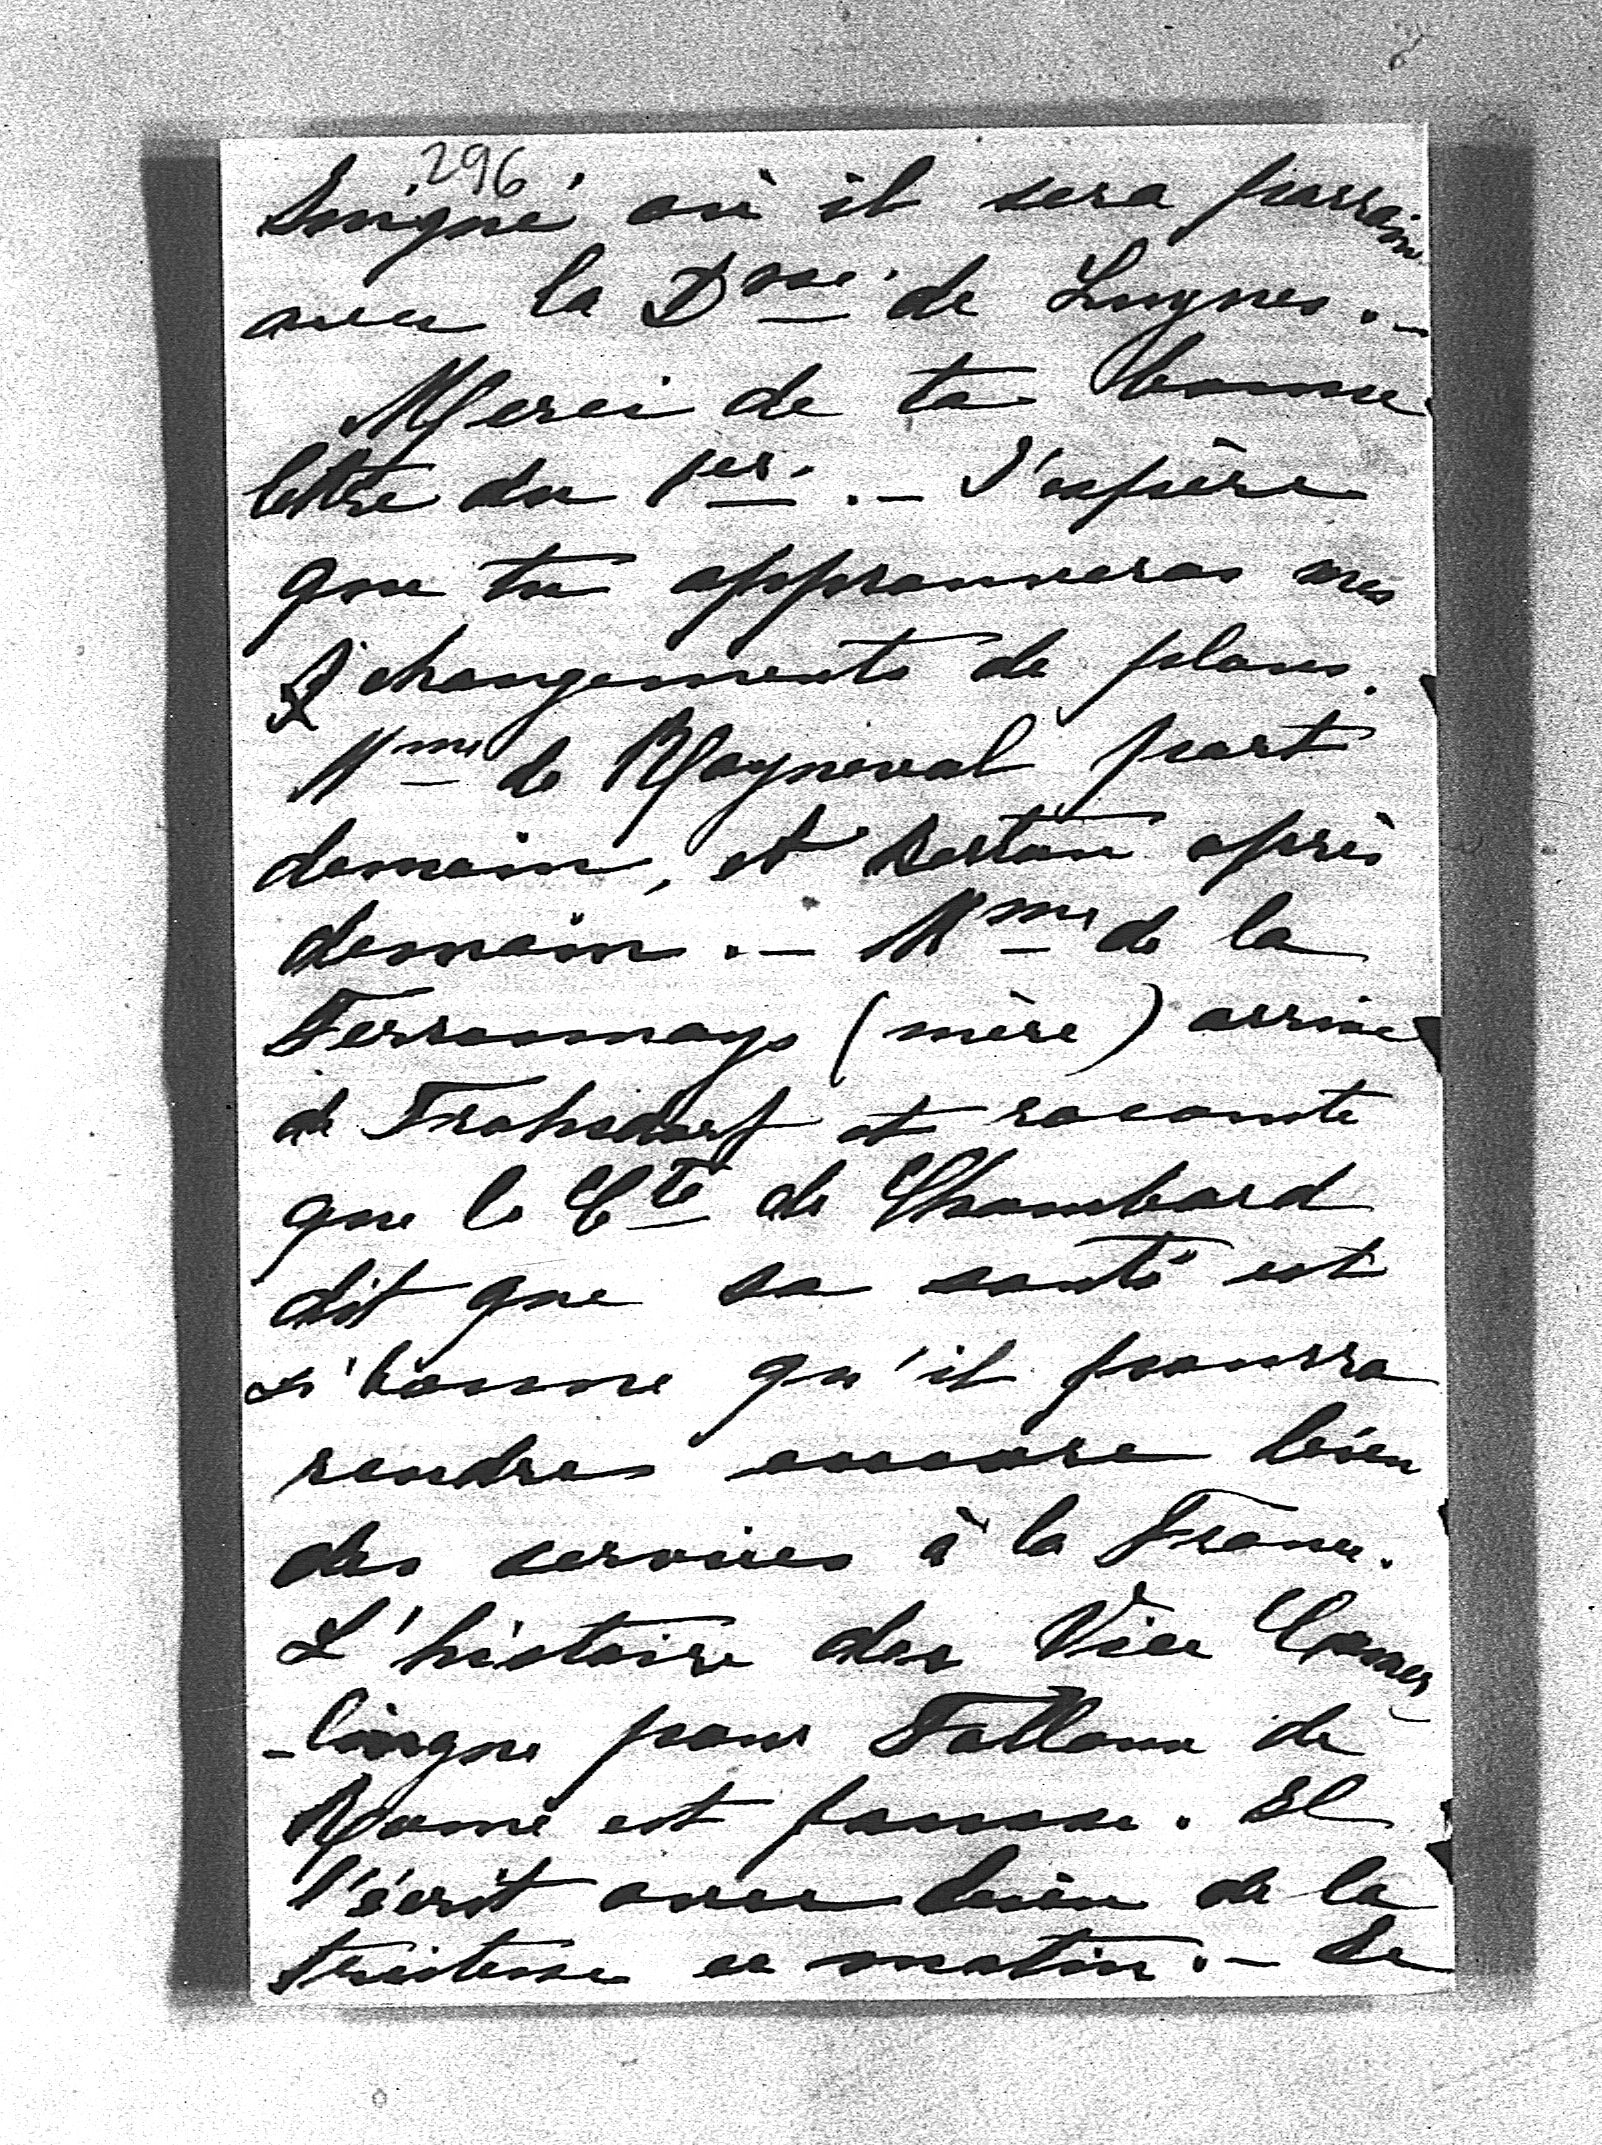 296
où il sera parrain
avec la Dsse de Luynes. –
Merci de ta bonne
lettre du 1er. – J'espère
que tu approuveras mes
changements de plans.
Mme de Rayneval part
demain, et Bertin après
demain. – Mme de la
Ferronnays (mère) arrive
de Frohsdorf et raconte
que le Cte de Chambord
dit que sa santé est
si bonne qu'il pourra
rendres encore bien
des services à la France.
L'histoire des Vice Camer
-lingue pour Falloux de
Rome est fausse. Il
l'écrit avec bien de la
tristesse ce matin. – Le